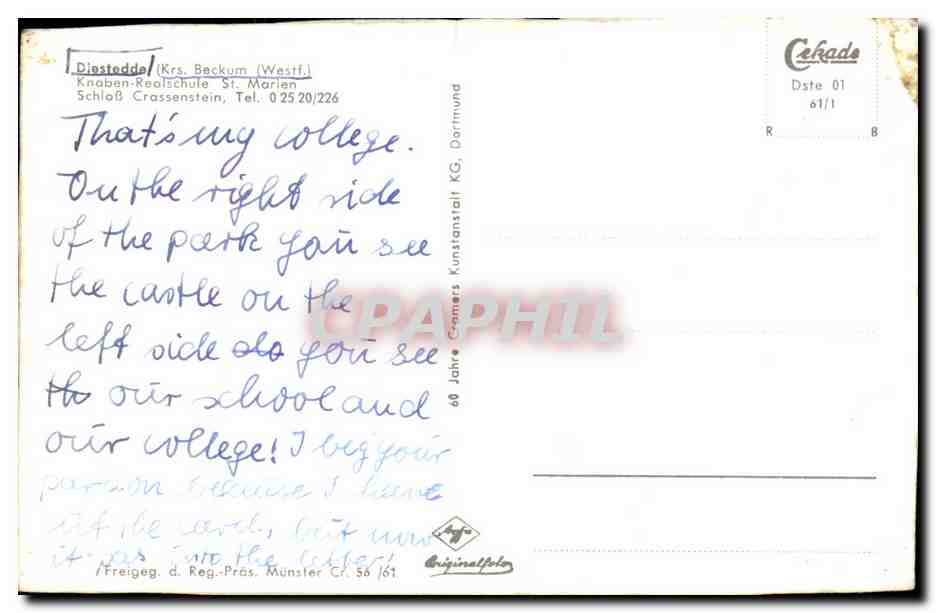 Diestedde (Krs. Beckum (Westf.)
Knaben-Realschule St. Marien
Schloß Crassenstein, Tel. 0 25 20/226
That's my college.
On the right side
of the park you see
the castle on the
left side you see
our school and
our college! I beg your
pardon because I have
cut the card, but now
it pas into the letter!
Freigeg. d. Reg.-Präs. Münster Cr. 56 /61
60 Jahre Cramers Kunstanstalt KG, Dortmund
Agfa
Originalfoto
Cekade
Dste 01
61/1
R B
CPAPHIL